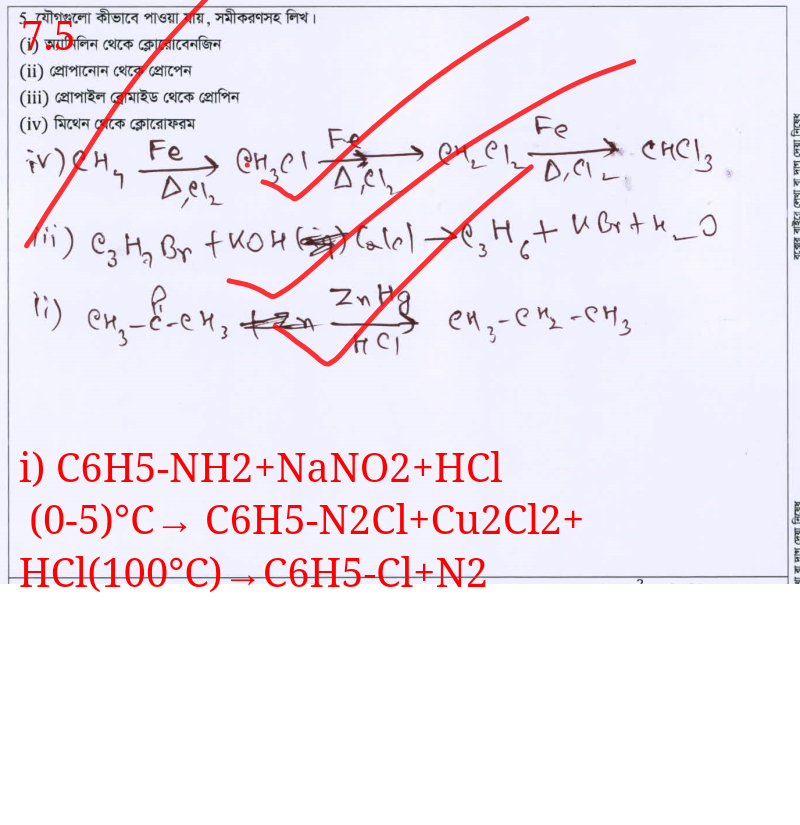 5. যৌগগুলো কীভাবে পাওয়া যায়, সমীকরণসহ লিখ।
7.5
(i) অ্যানিলিন থেকে ক্লোরোবেনজিন
(ii) প্রোপানোন থেকে প্রোপেন
(iii) প্রোপাইল ব্রোমাইড থেকে প্রোপিন
(iv) মিথেন থেকে ক্লোরোফরম
iv) CH4 Fe Δ,Cl2 → CH3Cl Fe Δ,Cl2 → CH2Cl2 Fe Δ,Cl2 → CHCl3
iii) C3H7Br + KOH (alc) → C3H6 + KBr + H2O
ii) CH3-C(=O)-CH3 ZnHg HCl → CH3-CH2-CH3
i) C6H5-NH2+NaNO2+HCl
(0-5)°C→ C6H5-N2Cl+Cu2Cl2+
HCl(100°C)→C6H5-Cl+N2